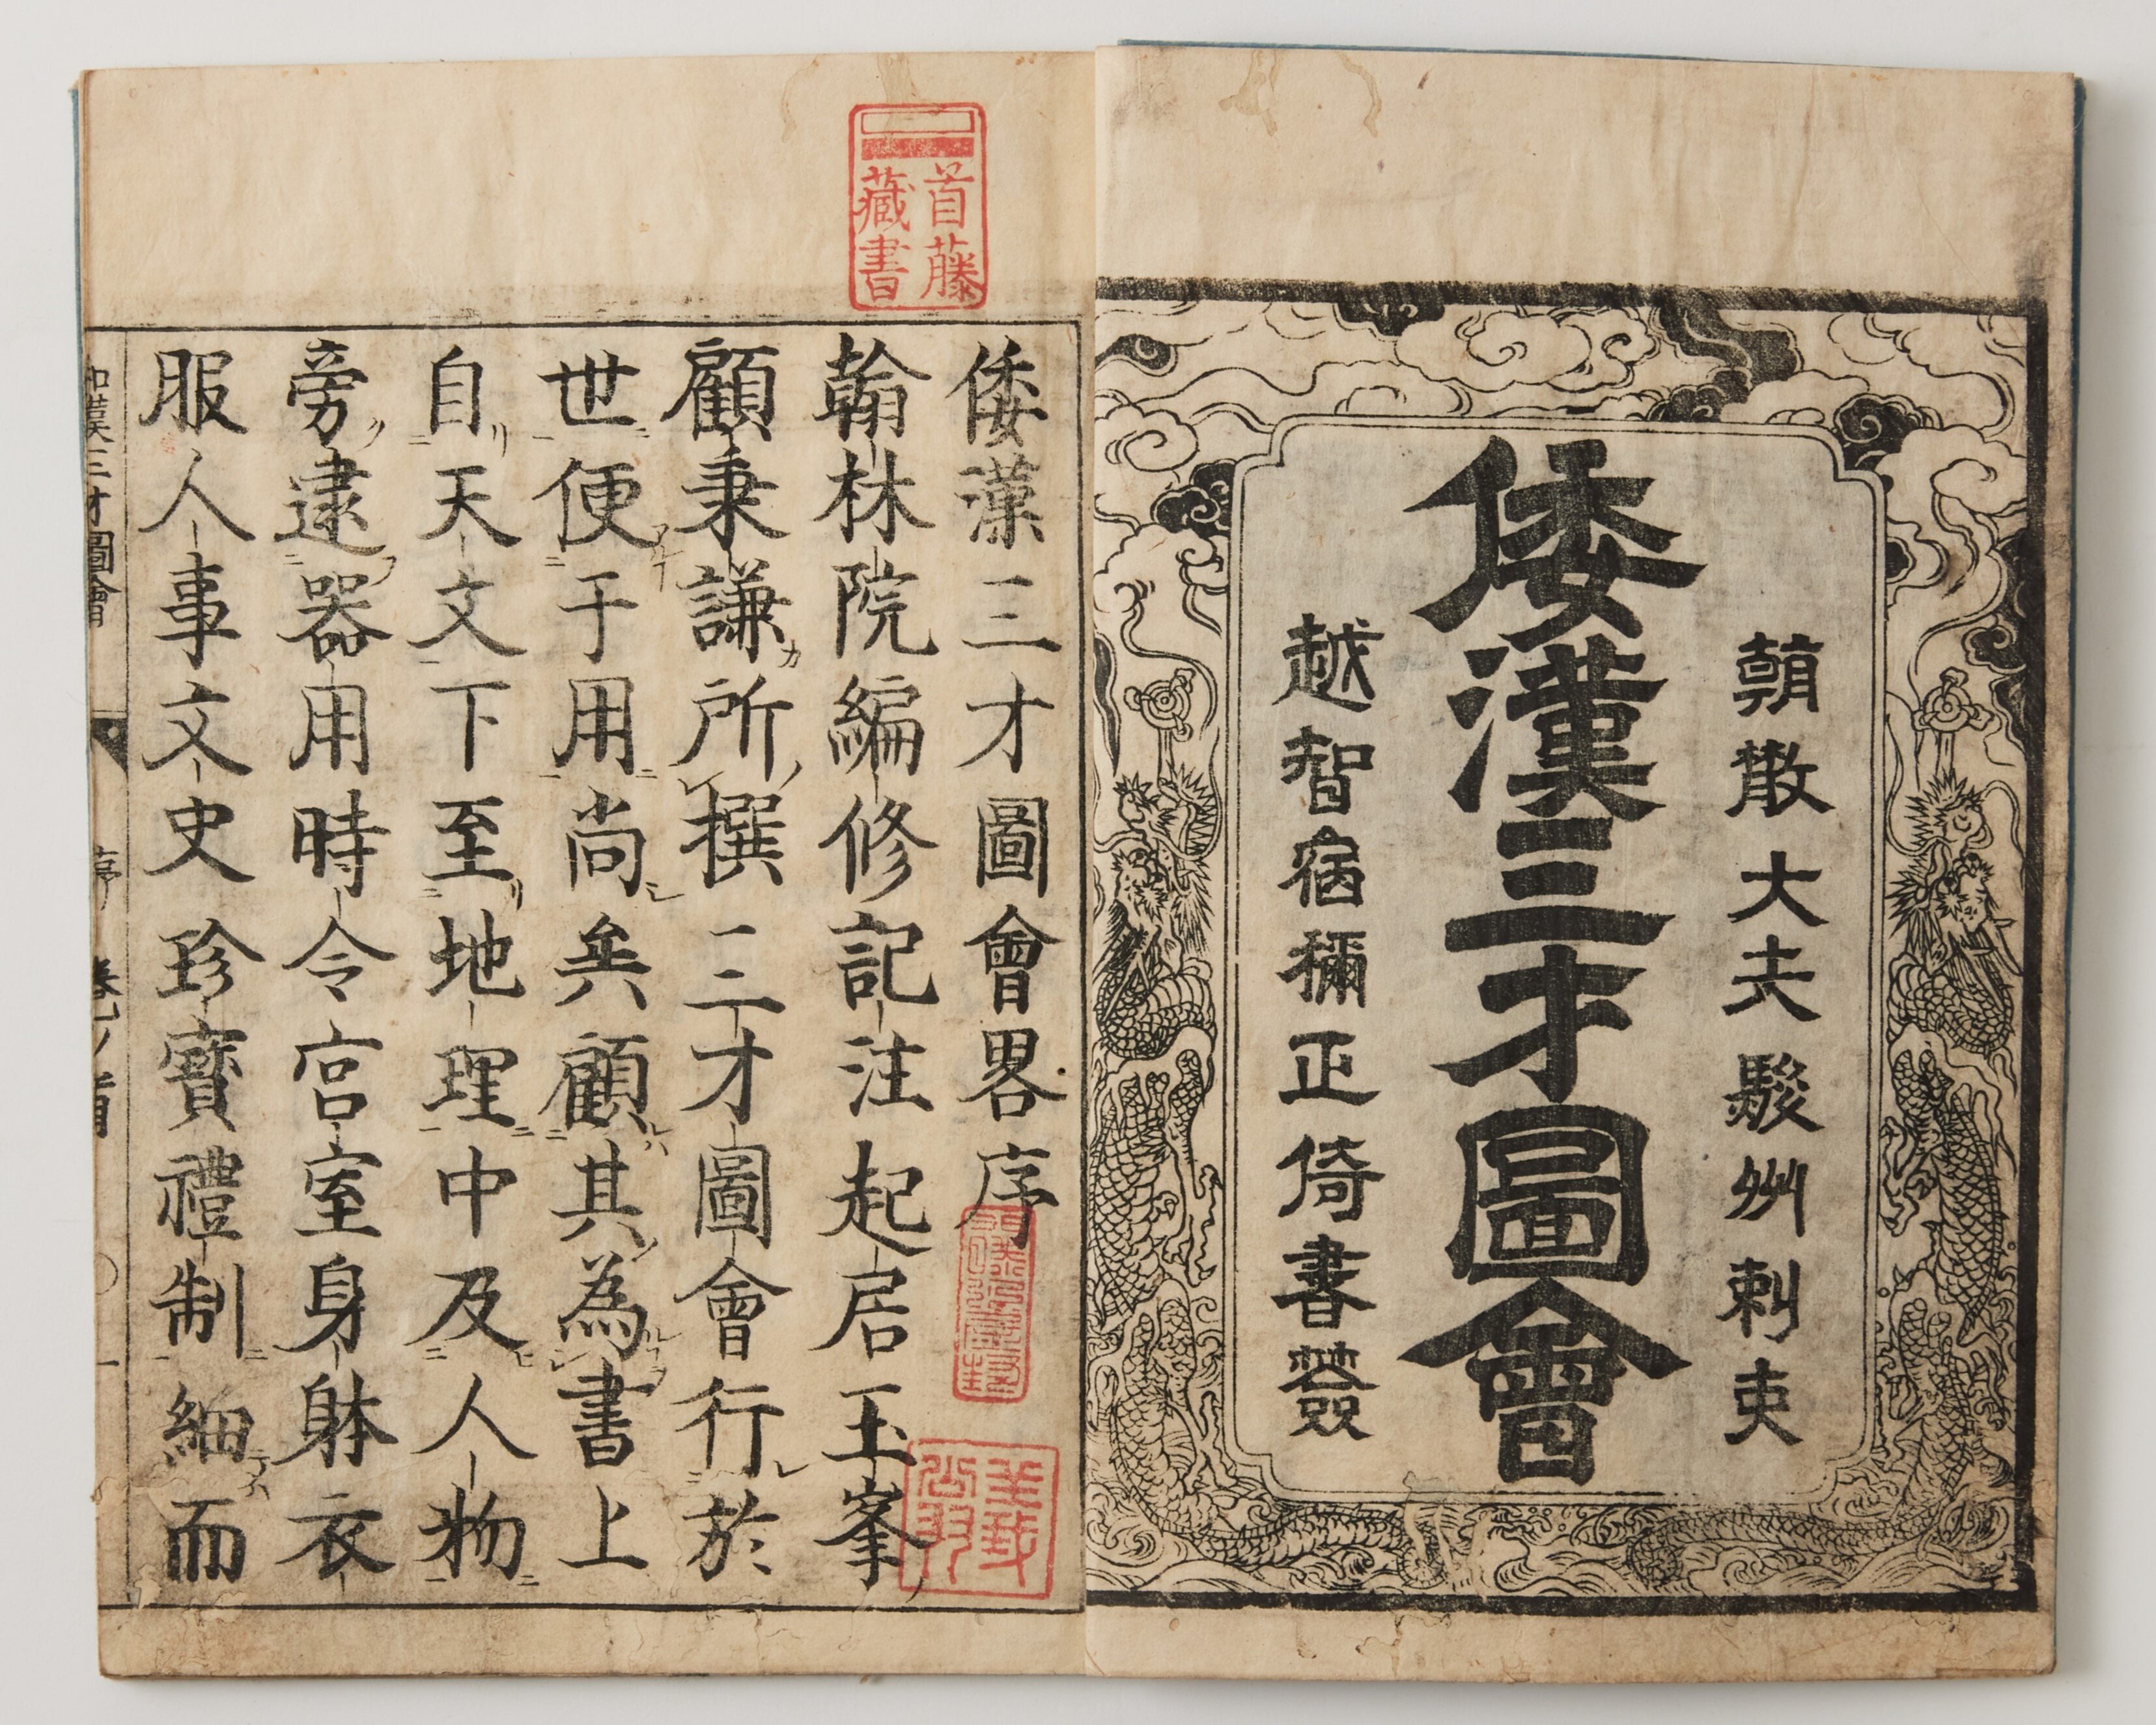 朝散大夫駿州刺史
倭漢三才圖會
越智宿禰正倚書簽
首藤
藏書
倭漢三才圖會畧序
翰林院編修記注起居玉峯
顧秉謙所撰三才圖會行於
世便于用尚矣顧其為書上
自天文下至地理中及人物
旁逮器用時令宮室身躰衣
服人事文史珍寶禮制細而
和漢三才圖會 序 卷ノ首 一